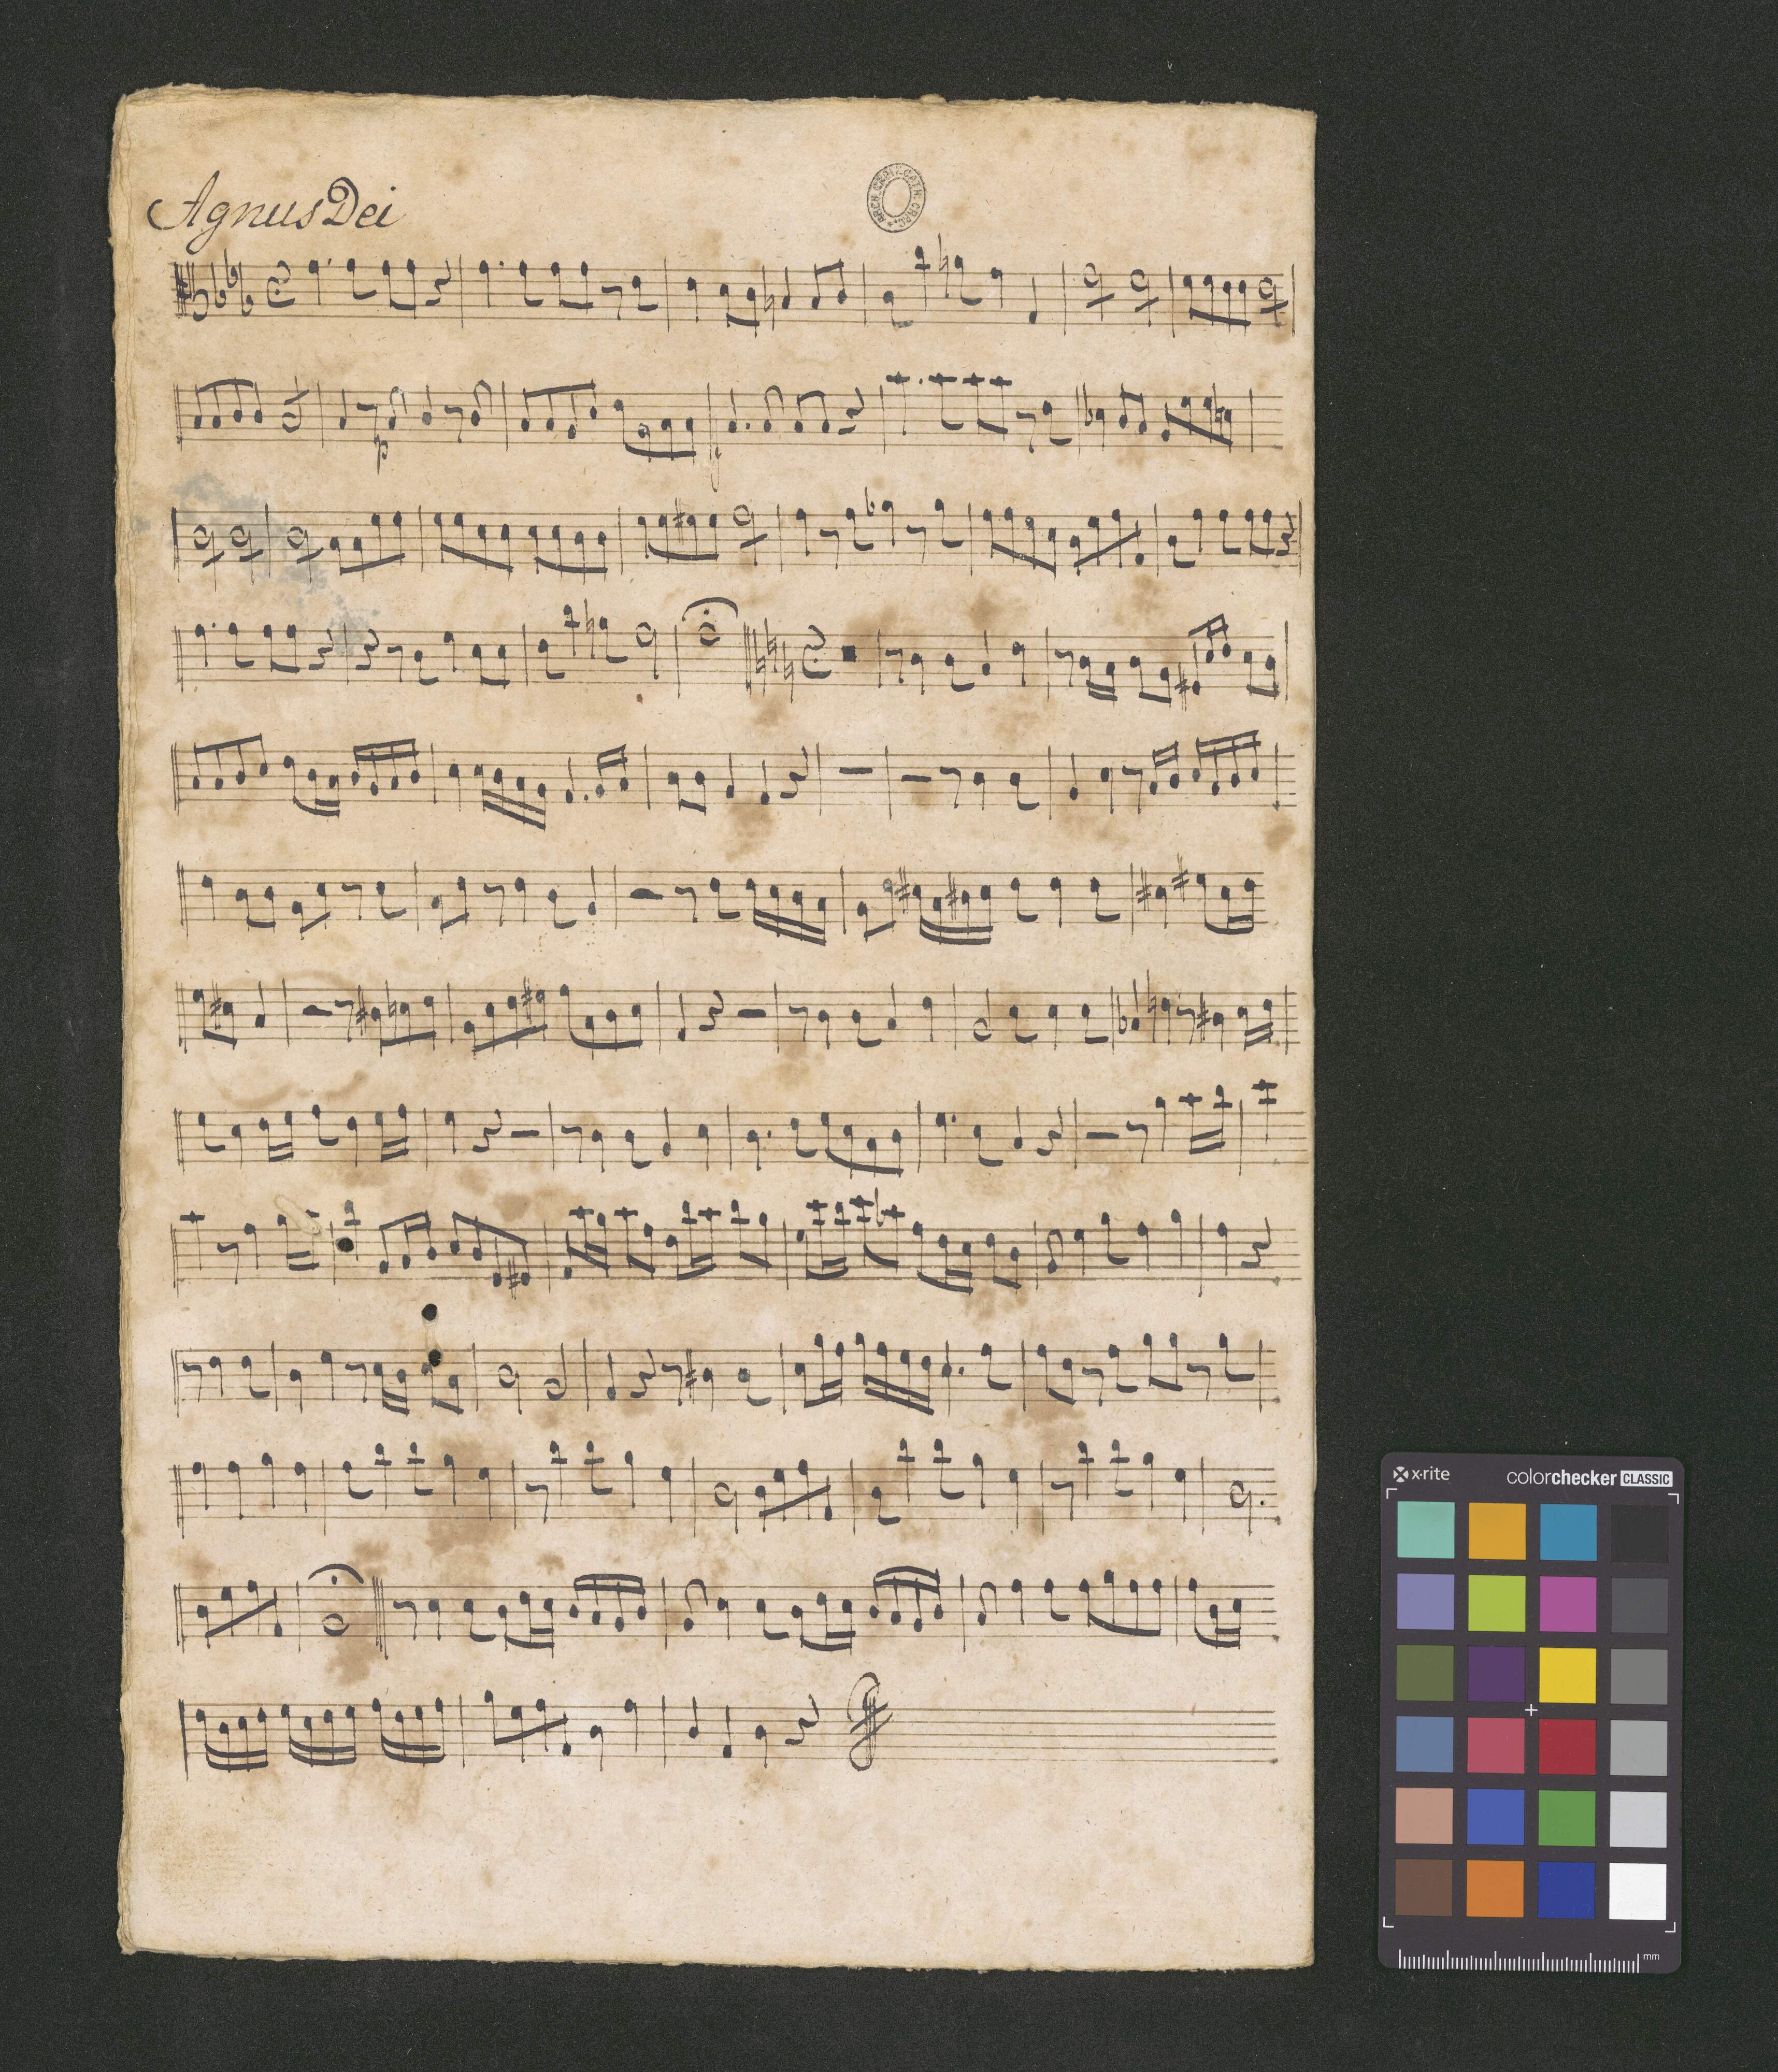 Agnus Dei
ARCH. CAPIT. CATH. CRAC.
p
f
x-rite
colorchecker CLASSIC
mm